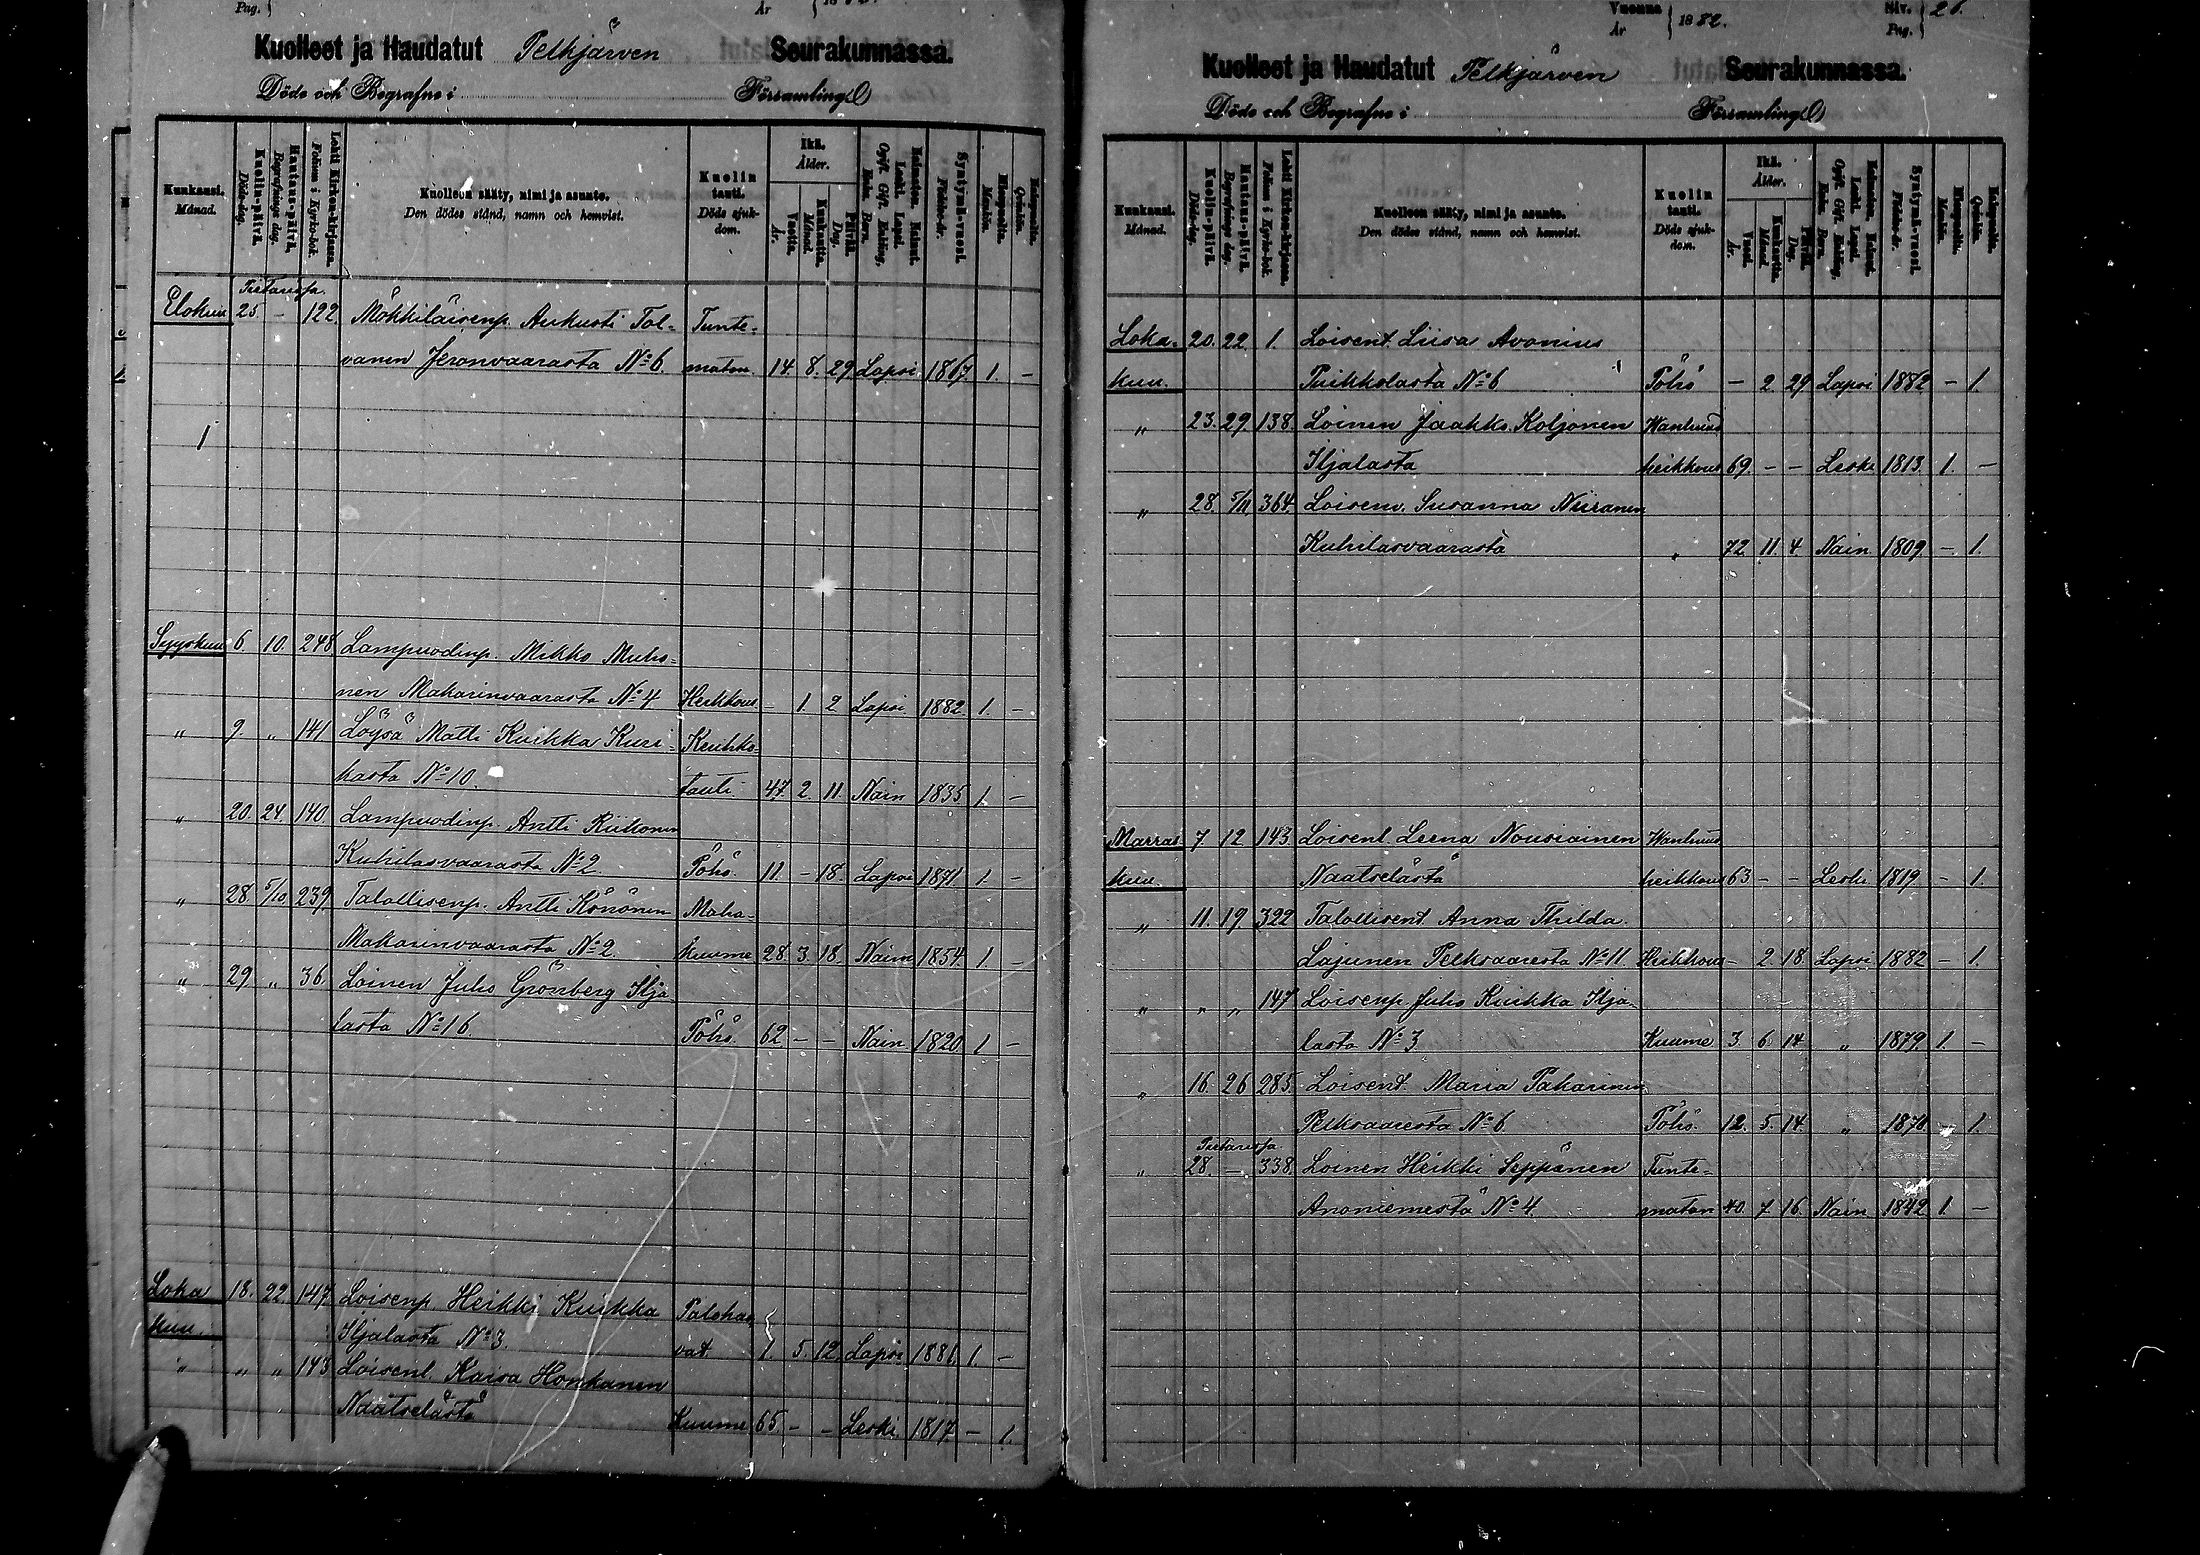 Pag.
År
Kuolleet ja Haudatut Pelkjärven Seurakunnassa.
Döde och Begrafne i Församling
Kuukausi. Månad.
Kuolin-päivä. Döds-dag.
Hautaus-päivä. Begrafnings dag.
Lehti Kirkon-kirjassa. Folium i Kyrko-bok.
Kuolleen sääty, nimi ja asunto.
Den dödes stånd, namn och hemvist.
Kuolin tauti. Döds sjuk-dom.
Ikä. Ålder.
Vuotta. År.
Kuukautta. Månad.
Päivää. Dag.
Naimaton. Nainut. Leski. Lapsi.
Ogift. Gift. Enkling, Enka. Barn.
Syntymä-vuosi. Födelse-år.
Miespuolia. Mankön.
Vaimopuolia. Qvinkön.
Elokuu 25 – 122 Mökkiläisenp. Aukusti Tol- Tunte-
vanen Jeronvaarasta No 6. maton. 14 8. 29 Lapsi 1867 1. –
1
Syyskuu 6 10. 248 Lampuodinp. Mikko Muho-
nen Makarinvaarasta No 4 Heikkous – 1. 2 Lapsi 1882. 1. –
" 9. " 141 Löysä Matti Kuikka Kuri- Keuhko-
kasta No 10. tauti. 47 2. 11. Nain 1835 1. –
" 20. 24. 140. Lampuodinp. Antti Riikonen
Kuhilasvaarasta No 2. Pöhö. 11. – 18. Lapsi 1871. 1. –
" 28. 5/10. 239. Talollisenp. Antti Könönen Maha-
Makarinvaarasta No 2. kuume 28. 3. 18. Naim 1854 1. –
" 29 " 36. Loinen Juho Grönberg Ilja
lasta No 16. Pöhö. 62 – – Nain 1820 1 –
Loka 18. 22. 147. Loisenp. Heikki Kuikka Palohaa
kuu. Iljalasta No 3. vat. 1. 5. 12. Lapsi 1881. 1. –
" " " 143 Loisenl. Kaisa Honkanen
Näätselästä Kuume 65. – – Leski. 1817 – 1.
Vuonna 1882. Siv. 26.
År Pag.
Kuolleet ja Haudatut Pelkjärven Seurakunnassa.
Döde och Begrafne i Församling
Kuukausi. Månad.
Kuolin-päivä. Döds-dag.
Hautaus-päivä. Begrafnings dag.
Lehti Kirkon-kirjassa. Folium i Kyrko-bok.
Kuolleen sääty, nimi ja asunto.
Den dödes stånd, namn och hemvist.
Kuolin tauti. Döds sjuk-dom.
Ikä. Ålder.
Vuosi. År.
Kuukautta. Månad.
Päivää. Dag.
Naimaton. Nainut. Leski. Lapsi.
Ogift. Gift. Enkling, Enka. Barn.
Syntymä-vuosi. Födelse-år.
Miespuolia. Mankön.
Vaimopuolia. Qvinkön.
Loka- 20. 22. 1. Loisent. Liisa Avonius
kuu. Puikkolasta No 6 Pöhö – 2 29 Lapsi 1882 – 1.
" 23. 29. 138. Loinen Jaakko Koljonen Wanhuud
Iljalasta heikkous 69 – – Leski 1813. 1. –
" 28. 5/11. 364. Loisenv. Susanna Niiranen
Kuhilasvaarasta " 72 11. 4 Nain 1809 – 1.
Marras 7 12 143. Loisenl. Leena Nousiainen Wanhuud
kuu. Näätselästä heikkous 63 – – Leski 1819 – 1.
" 11. 19. 322 Talollisent Anna Thilda
Lajunen Pelkosaaresta No 11. Heikkous – 2. 18. Lapsi 1882 – 1.
" " " 147 Loisenp. Juho Kuikka Ilja-
lasta No 3 Kuume 3 6. 14 " 1879. 1. –
" 16. 26 285. Loisent. Maria Pakarinen
Pelkosaaresta No 6 Pöhö. 12. 5. 14. " 1870 – 1.
" 28. – 338. Loinen Heikki Seppänen Tunte-
Anoniemestä No 4. maton 40. 7 16. Nain 1842 1. –